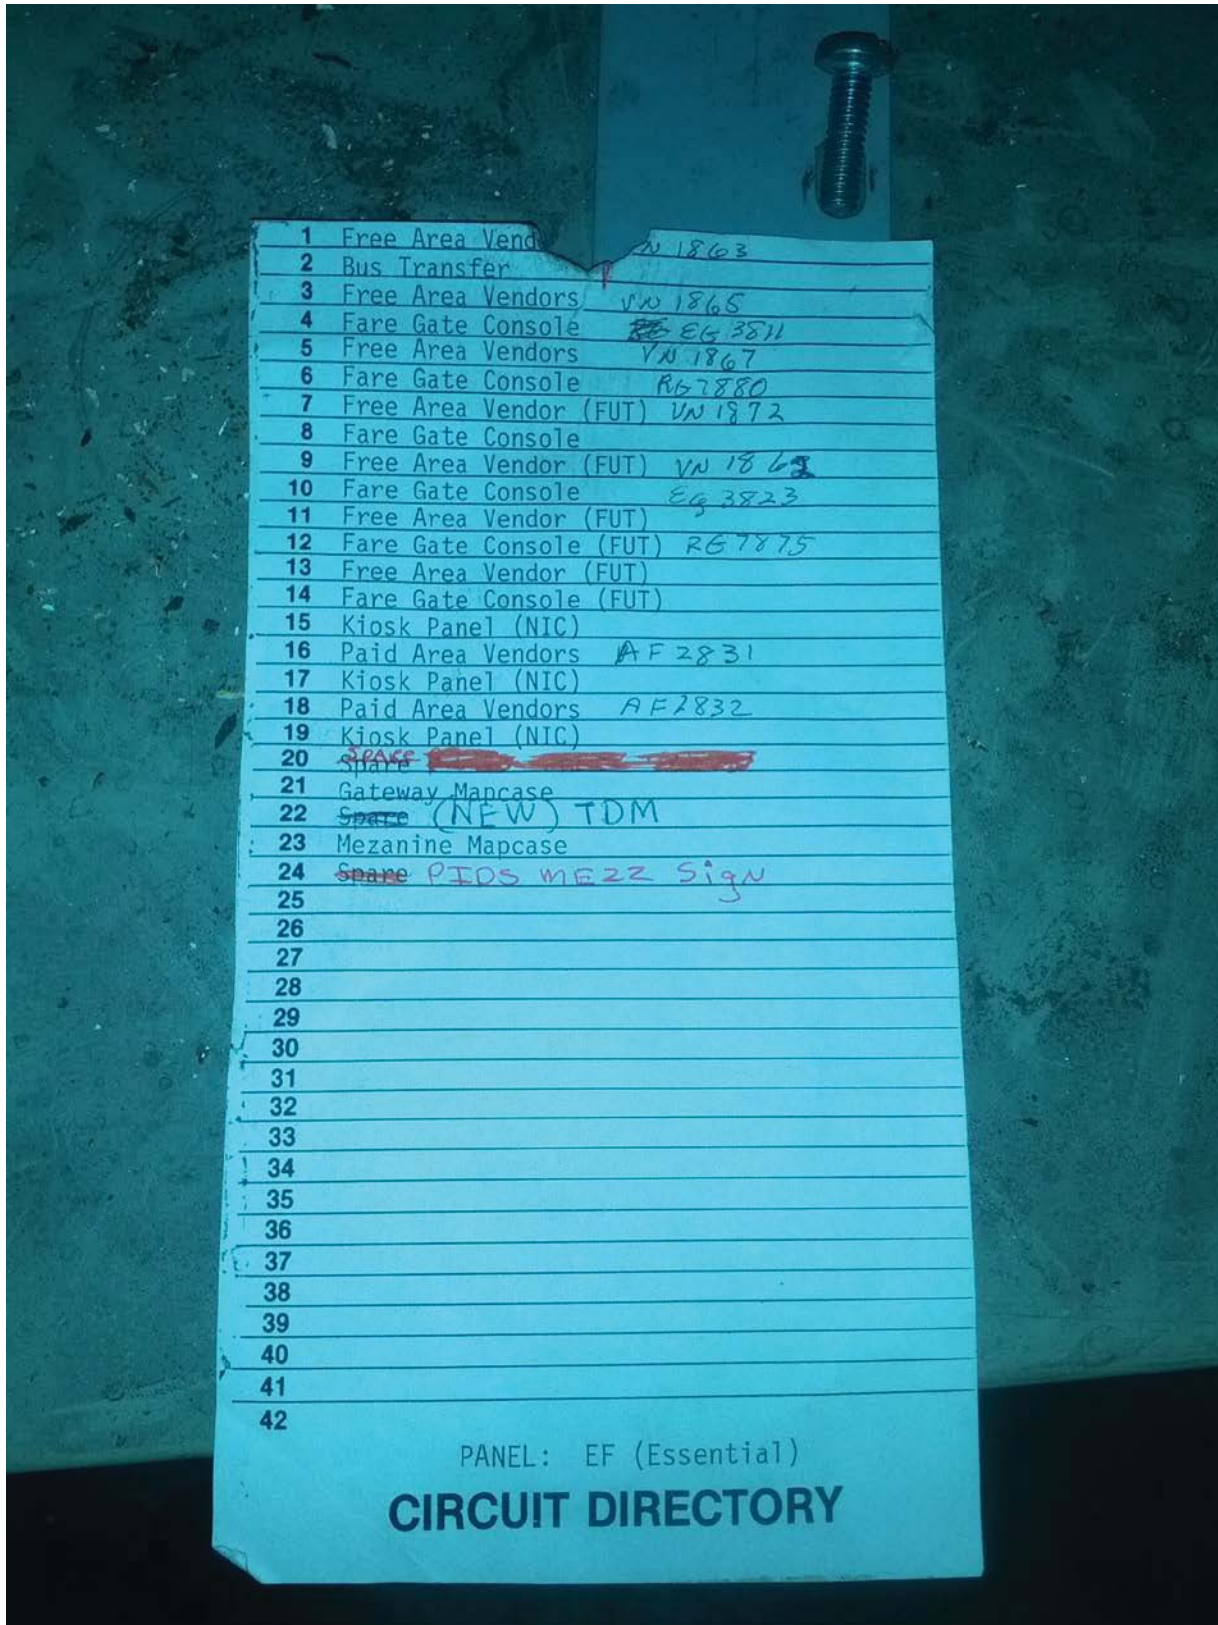 1 Free Area Vend VN 1863
2 Bus Transfer
3 Free Area Vendors VN 1865
4 Fare Gate Console EG 3811
5 Free Area Vendors VN 1867
6 Fare Gate Console RG 7880
7 Free Area Vendor (FUT) VN 1872
8 Fare Gate Console
9 Free Area Vendor (FUT) VN
10 Fare Gate Console EG 3823
11 Free Area Vendor (FUT)
12 Fare Gate Console (FUT) RG 7875
13 Free Area Vendor (FUT)
14 Fare Gate Console (FUT)
15 Kiosk Panel (NIC)
16 Paid Area Vendors AF 2831
17 Kiosk Panel (NIC)
18 Paid Area Vendors AF 2832
19 Kiosk Panel (NIC)
20 Spare SPARE
21 Gateway Mapcase
22 Spare (NEW) TDM
23 Mezanine Mapcase
24 Spare PIDS MEZZ SigN
25
26
27
28
29
30
31
32
33
34
35
36
37
38
39
40
41
42
PANEL: EF (Essential)
CIRCUIT DIRECTORY